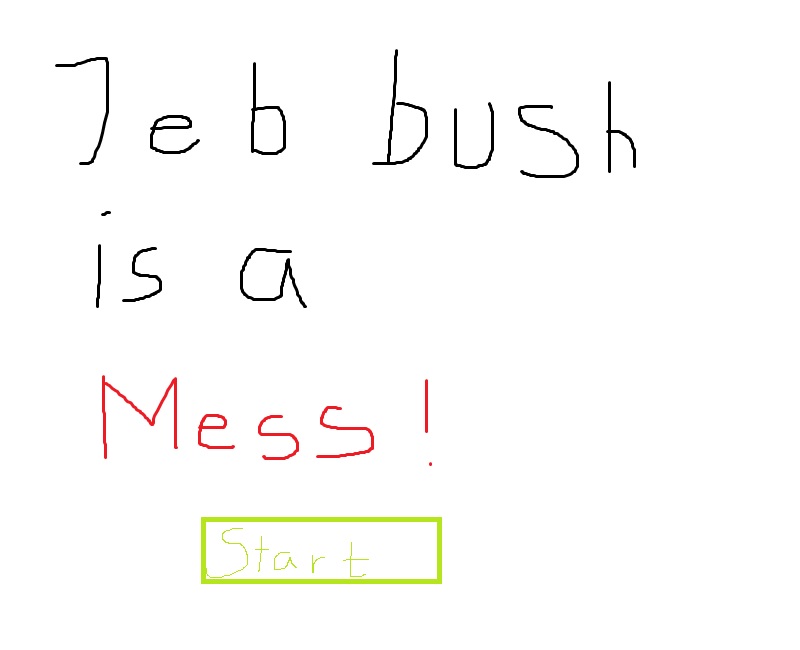 Jeb bush
is a
Mess!
Start